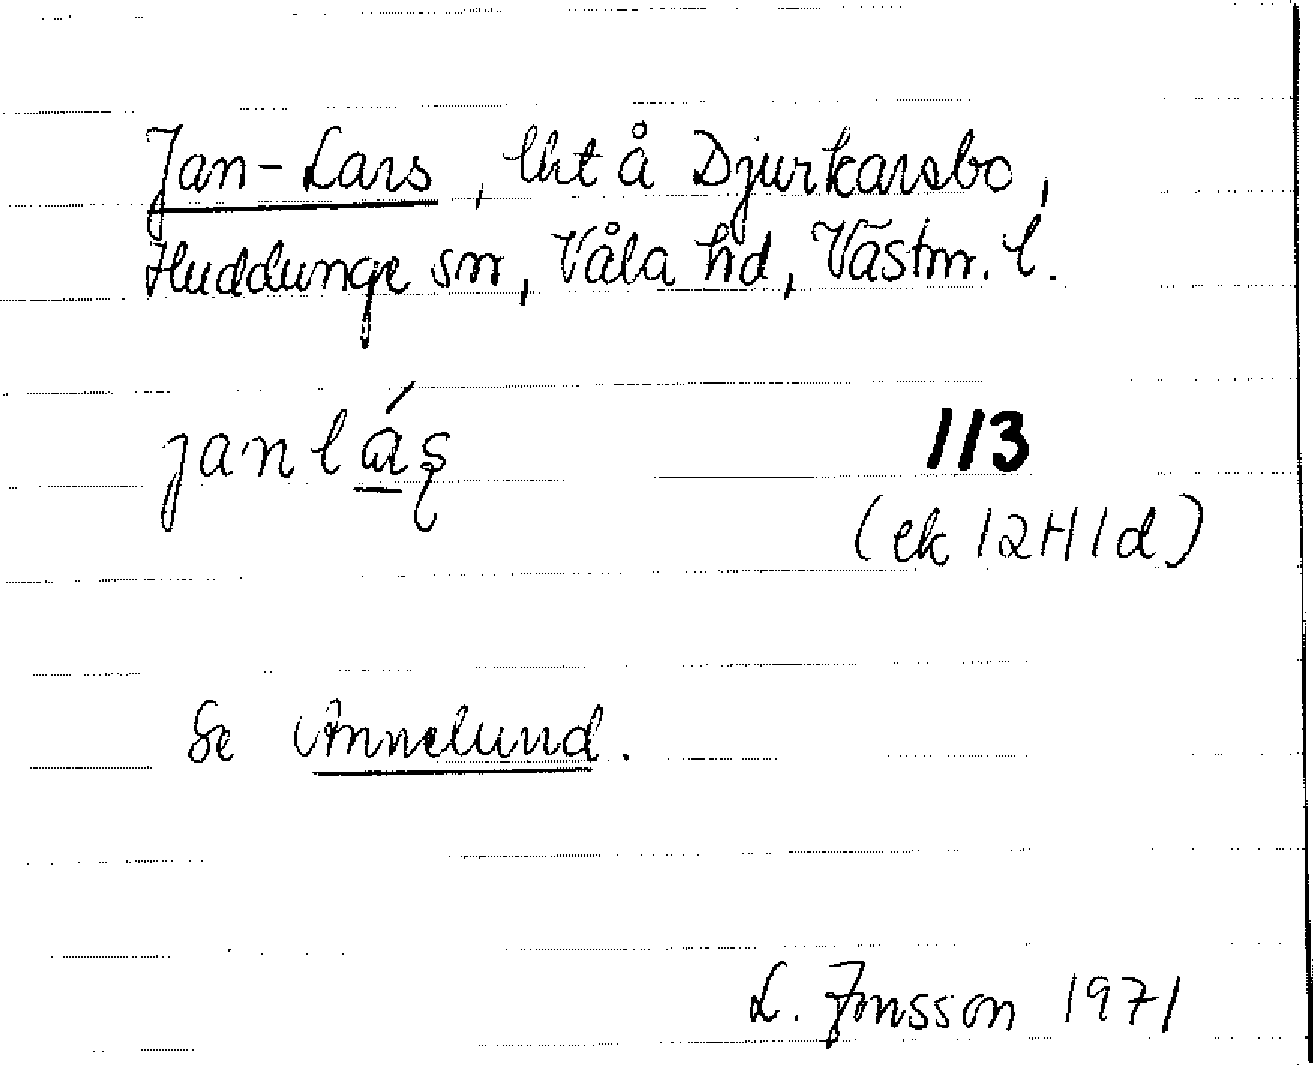 Jan-Lars, lht å Djurkarsbo,
Huddunge sn, Våla hd, Västm. l.
janlá̱ʂ
113
(ek 12H1d)
Se Annelund.
L. Jonsson 1971